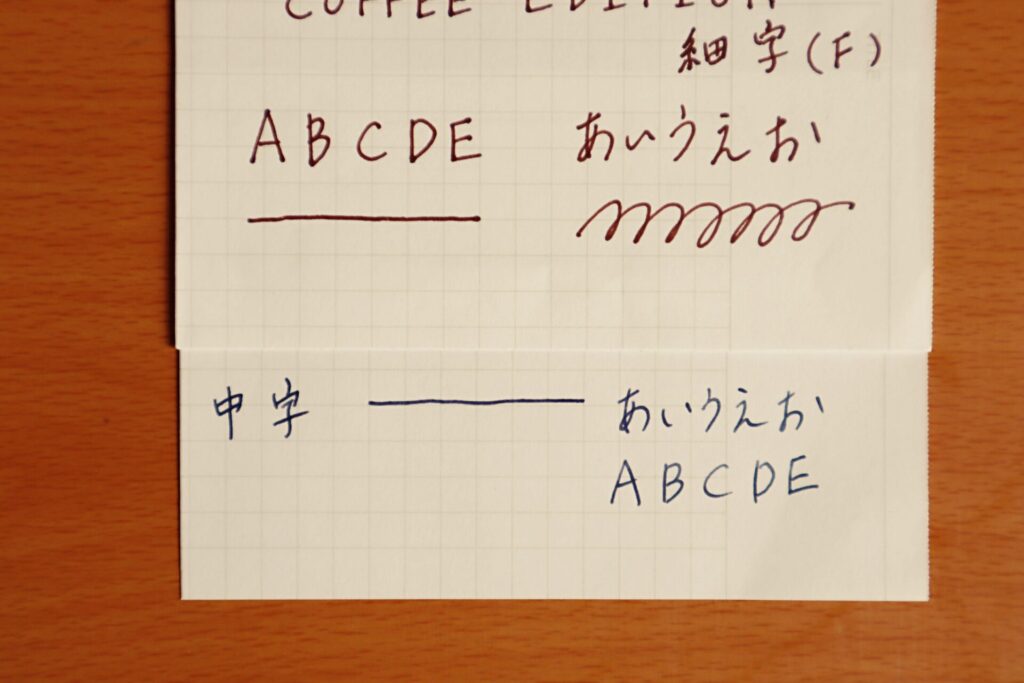 COFFEE EDITION
細字(F)
ABCDE あいうえお
中字 あいうえお
ABCDE